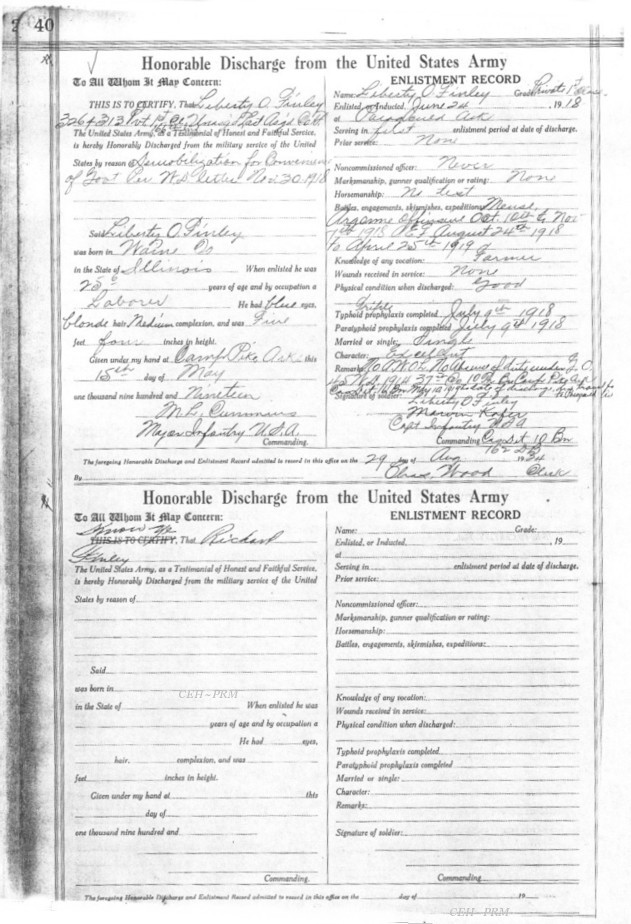 40
Honorable Discharge from the United States Army
To All Whom It May Concern:
THIS IS TO CERTIFY, That Liberty O. Finley
3264313 Pvt
The United States Army, as a Testimonial of Honest and Faithful Service,
is hereby Honorably Discharged from the military service of the United
States by reason of Demobilization for Convenience
of Govt Per W D letter Nov 30 1918
Said Liberty O. Finley
was born in Waine Co
in the State of Illinois When enlisted he was
25 years of age and by occupation a
Laborer He had blue eyes,
blonde hair, Medium complexion, and was Five
feet four inches in height.
Given under my hand at Camp Pike Ark this
15th day of May
one thousand nine hundred and Nineteen
M. L. Cummins
Major Infantry U.S.A.
Commanding.
ENLISTMENT RECORD
Name: Liberty O Finley Grade: Private
Enlisted, or Inducted, June 24, 1918
at Paragould Ark
Serving in first enlistment period at date of discharge.
Prior service: None
Noncommissioned officer: Never
Marksmanship, gunner qualification or rating: None
Horsemanship: No test
Battles, engagements, skirmishes, expeditions: Meuse
Argonne Offensive Oct. 10th to Nov
1918 A.E.F. August 24th 1918
to April 25th 1919
Knowledge of any vocation: Farmer
Wounds received in service: None
Physical condition when discharged: Good
Typhoid prophylaxis completed July 9th 1918
Paratyphoid prophylaxis completed July 9th 1918
Married or single: Single
Character: Excellent
Remarks: No A.W.O.L. No Absence
Signature of soldier: Liberty O Finley
Capt Infantry U S A
Commanding 10 Bn
162 D B
The foregoing Honorable Discharge and Enlistment Record admitted to record in this office on the 29 day of Aug 1934
By Wood Clerk
Honorable Discharge from the United States Army
To All Whom It May Concern:
Know
THIS IS TO CERTIFY, That Richard
Finley
The United States Army, as a Testimonial of Honest and Faithful Service,
is hereby Honorably Discharged from the military service of the United
States by reason of
Said
was born in
CEH~PRM
in the State of When enlisted he was
years of age and by occupation a
He had eyes,
hair, complexion, and was
feet inches in height.
Given under my hand at this
day of
one thousand nine hundred and
Commanding.
ENLISTMENT RECORD
Name: Grade:
Enlisted, or Inducted, , 19
at
Serving in enlistment period at date of discharge.
Prior service:
Noncommissioned officer:
Marksmanship, gunner qualification or rating:
Horsemanship:
Battles, engagements, skirmishes, expeditions:
Knowledge of any vocation:
Wounds received in service:
Physical condition when discharged:
Typhoid prophylaxis completed
Paratyphoid prophylaxis completed
Married or single:
Character:
Remarks:
Signature of soldier:
Commanding
The foregoing Honorable Discharge and Enlistment Record admitted to record in this office on the day of 19
CEH~PRM